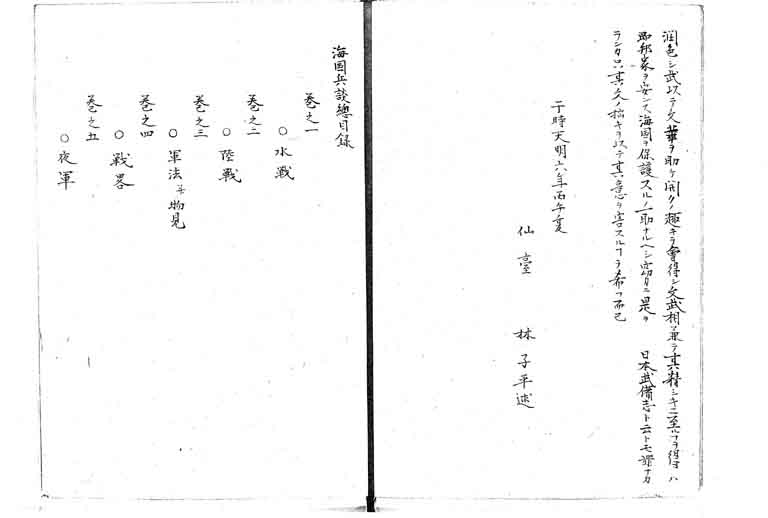 潤色シ武以テ文華ヲ助ケ開クノ趣キヲ會得シ文武相兼テ其精シキニ至ルヿヲ得ハ
即邦家ヲ安シ海国ヲ保護スルノ一助ナルヘシ窃カニ是ヲ 日本武備志ト云トモ罪ナカ
ランカ只其文ノ拙キヲ以テ其意ヲ害スルヿヲ希フ而已
于時天明六年丙午夏
仙臺 林子平述
海国兵談總目録
巻之一
○水戦
巻之二
○陸戦
巻之三
○軍法并物見
巻之四
○戦畧
巻之五
○夜軍